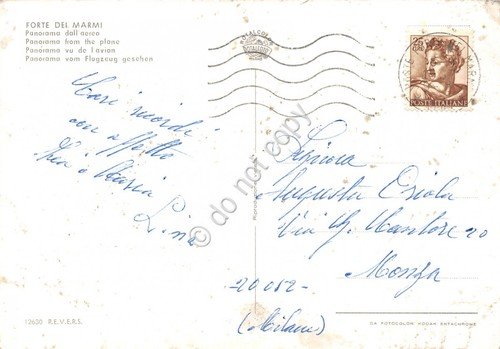 FORTE DEI MARMI
Panorama dall'aereo
Panorama from the plane
Panorama vu de l'avion
Panorama vom Flugzeug gesehen
Cari ricordi
con affetto
e Maria
Lina
POSTE ITALIANE
Signora
Augusta
Via G. Cantore 20
Monza
20052 -
(Milano)
© do not copy
12630 R.E.V.E.R.S.
DA FOTOCOLOR KODAK EKTACHROME